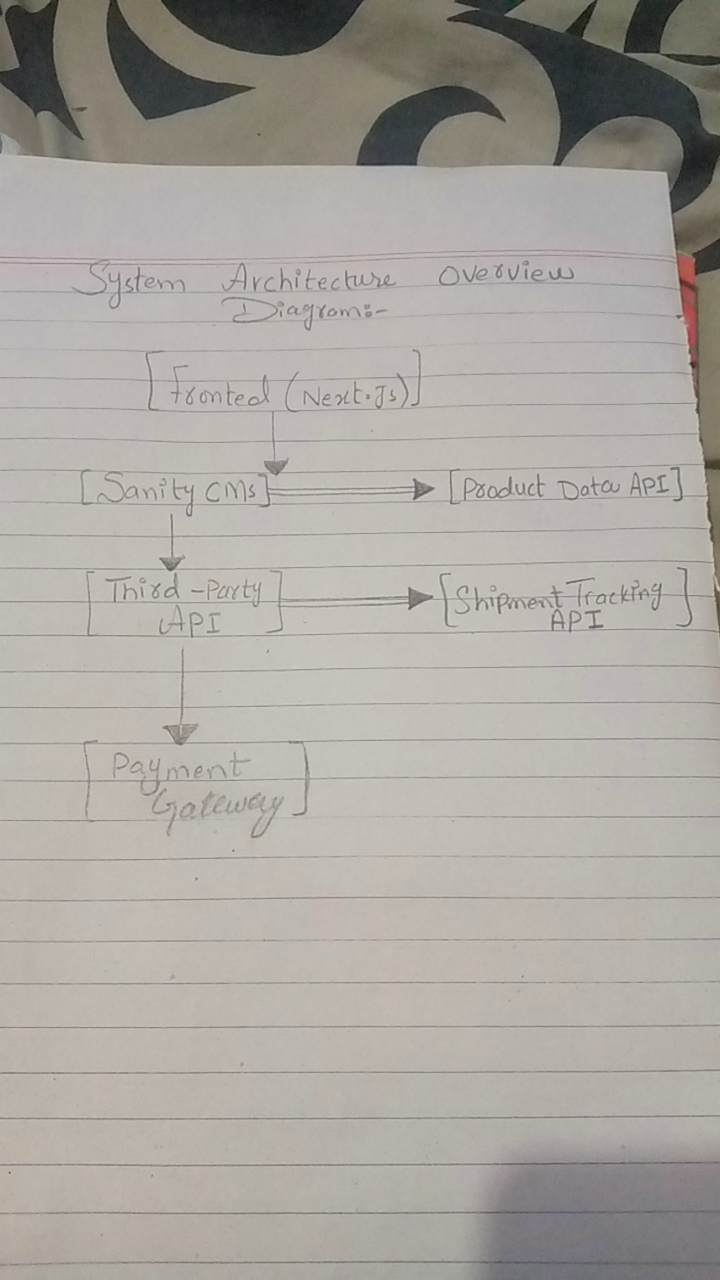 System Architecture Overview
Diagram:-
[Fronted (Next.Js)]
[Sanity CMS] [Product Data API]
[Third-Party [Shipment Tracking
API] API]
[Payment
Gateway]